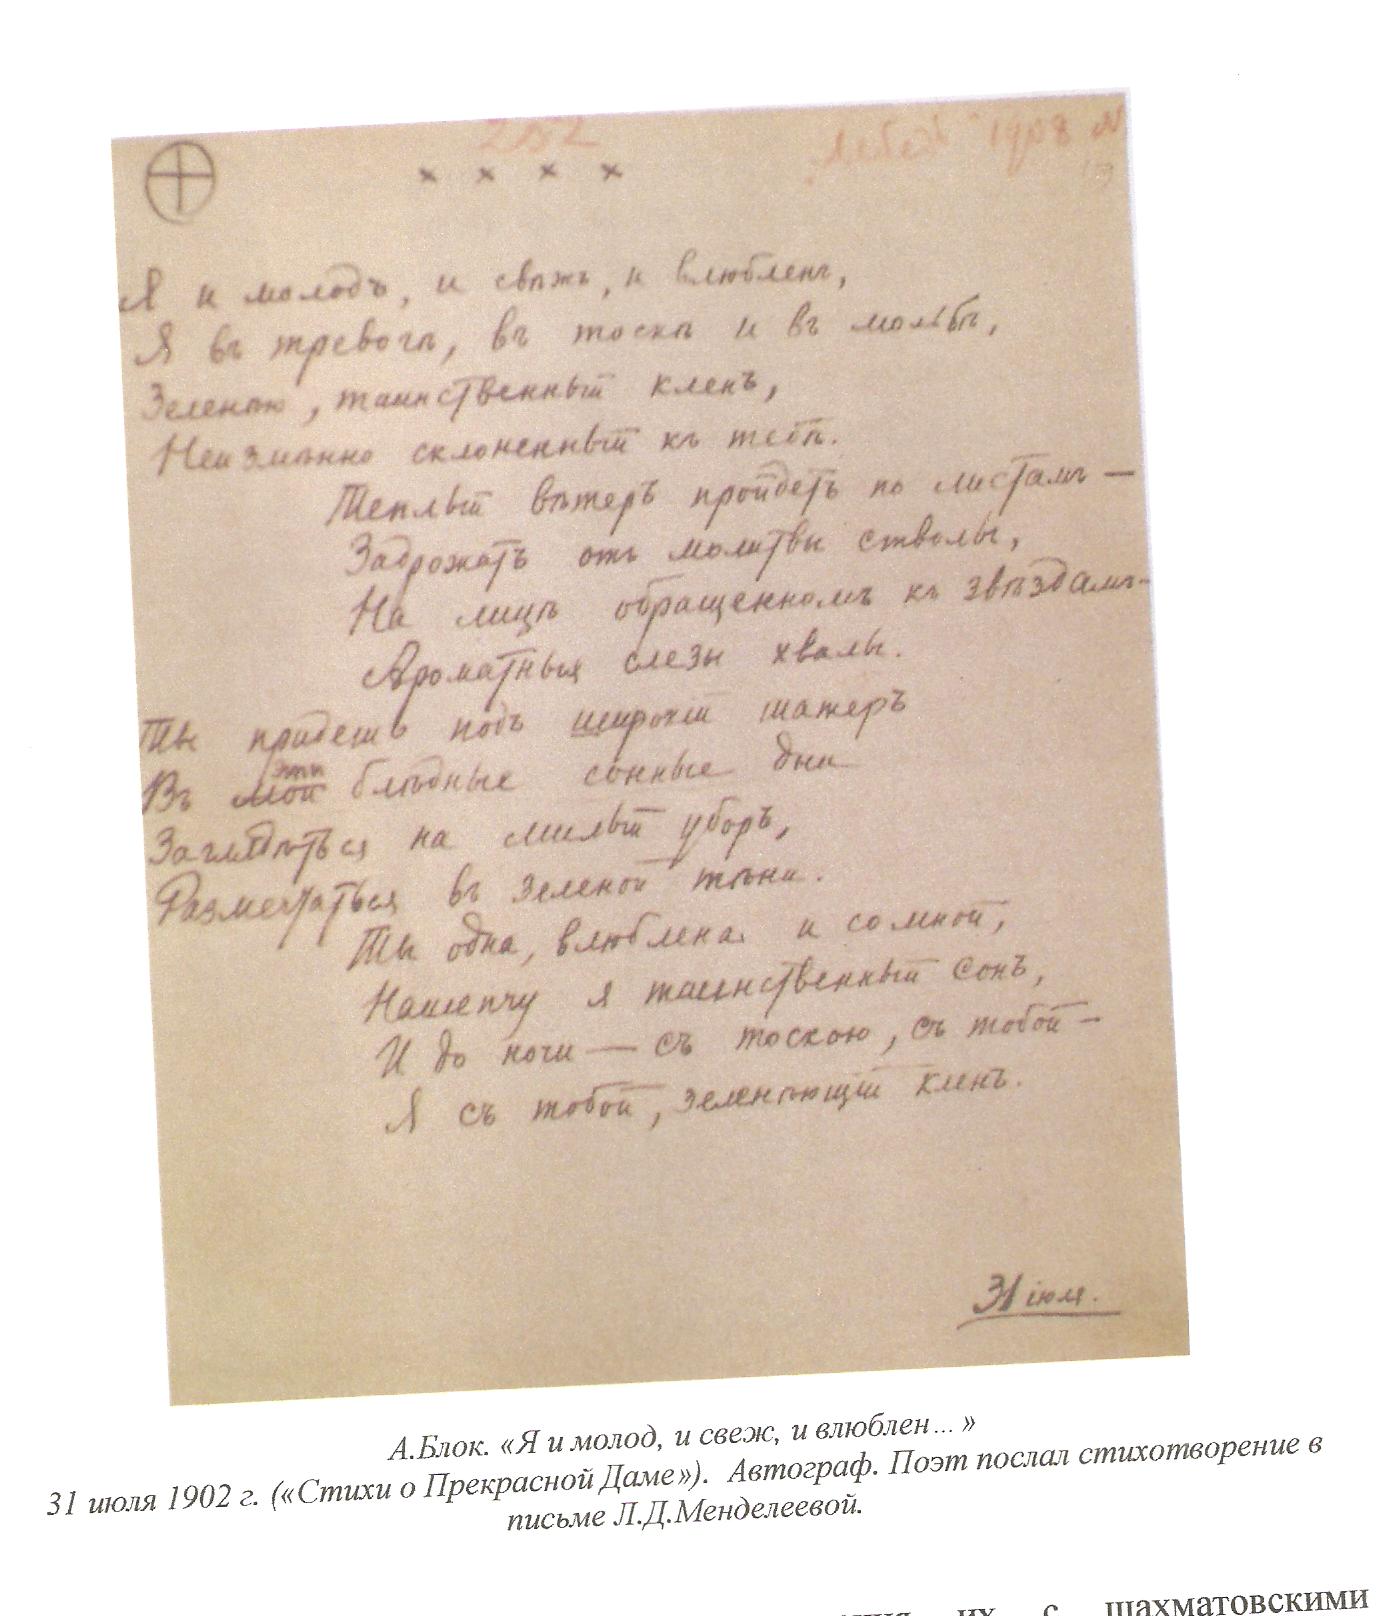 252
× × × ×
Лебедь 1908 №
Я и молодъ, и свѣжъ, и влюбленъ,
Я въ тревогѣ, въ тоскѣ и въ мольбѣ,
Зеленѣю, таинственный кленъ,
Неизмѣнно склоненный къ тебѣ.
Теплый вѣтеръ пройдетъ по листамъ —
Задрожатъ отъ молитвы стволы,
На лицѣ обращенномъ къ звѣздамъ-
Ароматныя слезы хвалы.
Ты придешь подъ широкій шатеръ
эти
Въ мои блѣдные сонные дни
Заглядѣться на милый уборъ,
Размечтаться въ зеленой тѣни.
Ты одна, влюблена и со мной,
Нашепчу я таинственный сонъ,
И до ночи — съ тоскою, съ тобой —
Я съ тобой, зеленѣющій кленъ.
31 іюля.
А.Блок. «Я и молод, и свеж, и влюблен... »
31 июля 1902 г. («Стихи о Прекрасной Даме»). Автограф. Поэт послал стихотворение в
письме Л.Д.Менделеевой.
их с шахматовскими